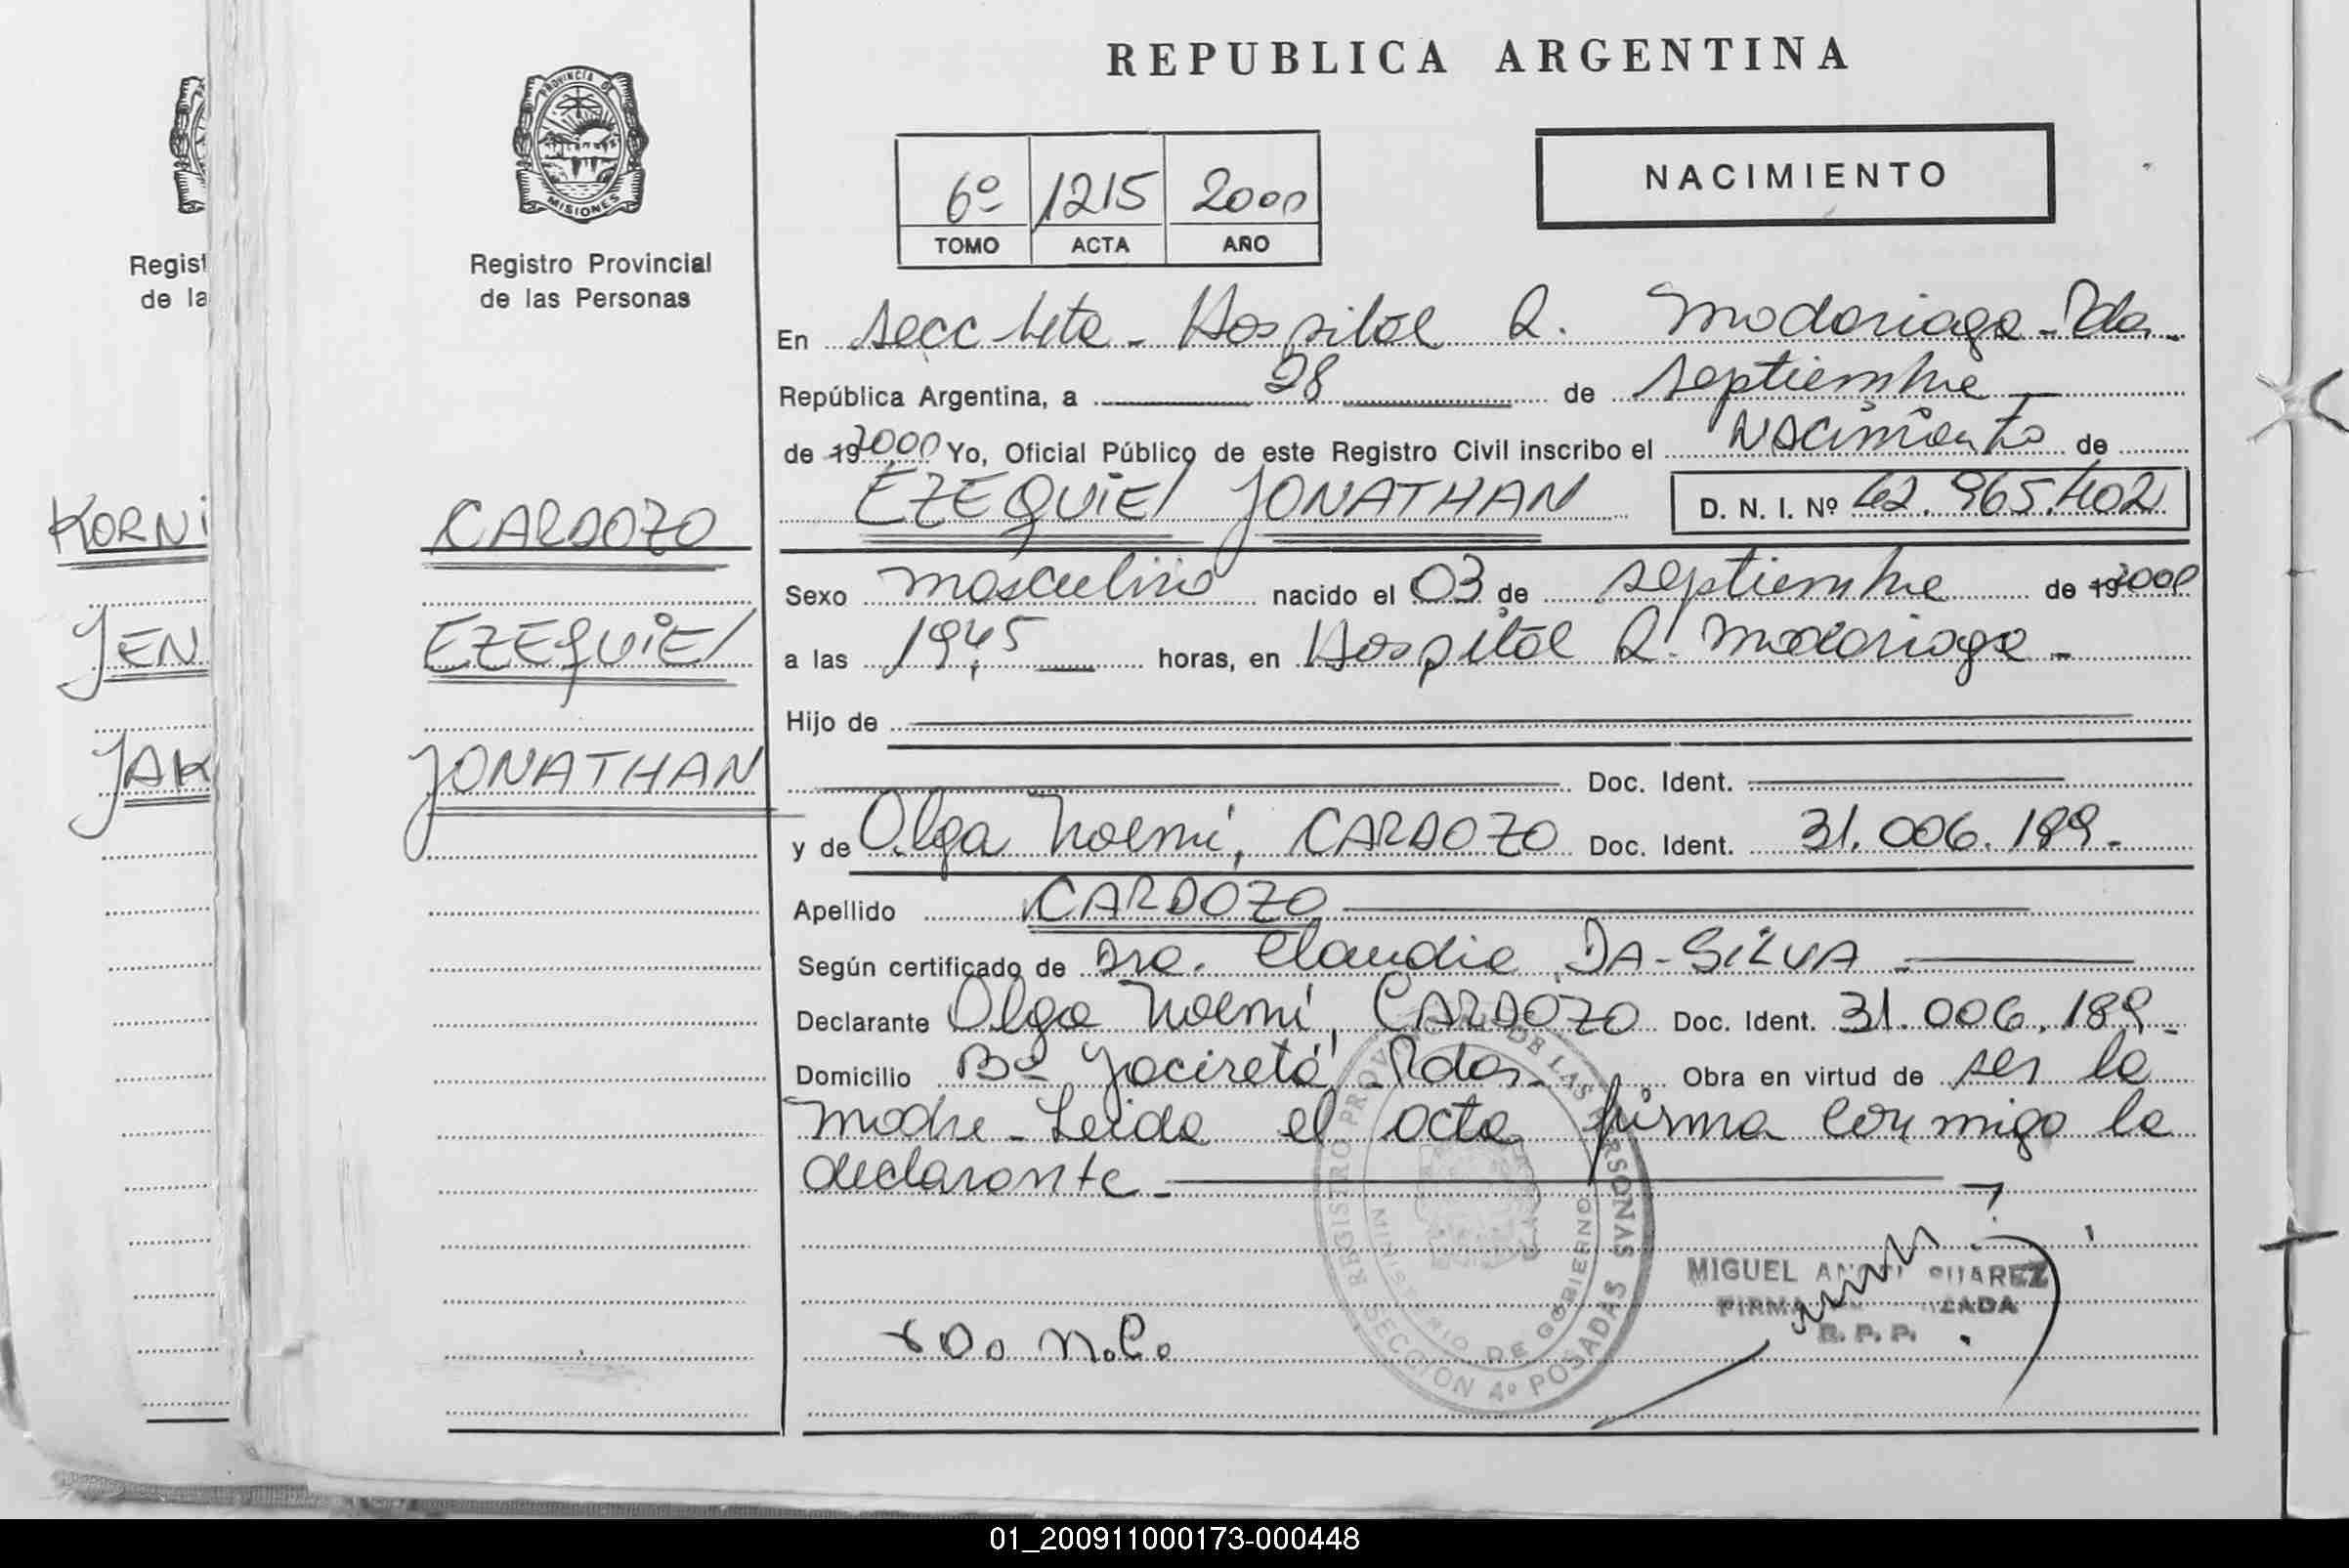 REPUBLICA ARGENTINA
PROVINCIA DE
MISIONES
Regist
de la
Registro Provincial
de las Personas
6º 1215 2000
TOMO ACTA AÑO
NACIMIENTO
En secc 4ta - Hospital R. Madariaga - Pdas -
República Argentina, a 28 de septiembre
de 19 2000 Yo, Oficial Público de este Registro Civil inscribo el Nacimiento de
EZEQUIEL JONATHAN D. N. I. Nº 42.965.402
KORNI
JEN
JAK
CARDOZO
EZEQUIEL
JONATHAN
Sexo masculino nacido el 03 de septiembre de 19 2000
a las 19,45 horas, en Hospital R. Madariaga -
Hijo de
Doc. Ident.
y de Olga Noemí, CARDOZO Doc. Ident. 31.006.189.
Apellido CARDOZO
Según certificado de Dra. Claudia DA-SILVA
Declarante Olga Noemí, CARDOZO Doc. Ident. 31.006.189 -
Domicilio Bº Yaciretá - Pdas - Obra en virtud de ser la
madre - Leida el acta firma conmigo la
declarante -
REGISTRO PROVINCIAL DE LAS PERSONAS
MINISTERIO DE GOBIERNO
SECCION 4º POSADAS
MIGUEL ANGEL SUAREZ
FIRMA
R. P. P.
O. N. C.
01_200911000173-000448